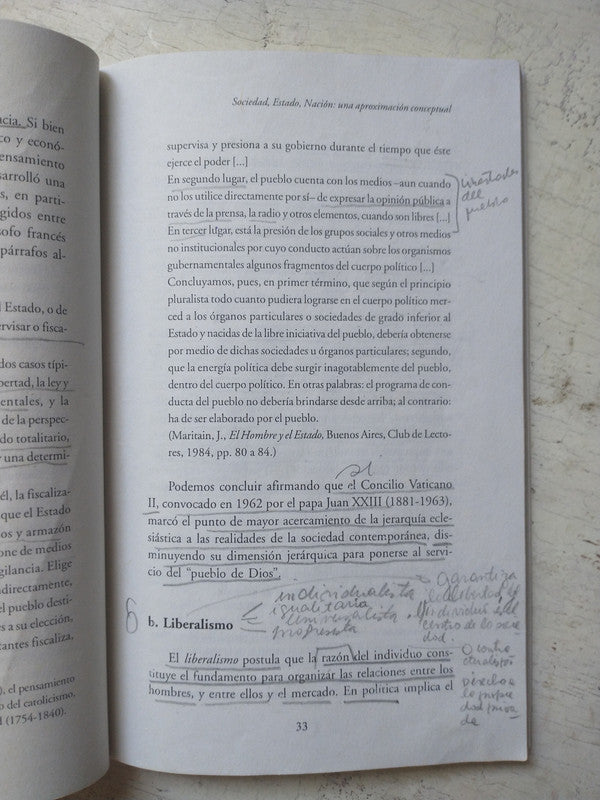 ncia. Si bien
co y econó-
ensamiento
sarrolló una
s, en parti-
gidos entre
sofo francés
párrafos al-
l Estado, o de
rvisar o fisca-
dos casos típi-
bertad, la ley y
entales, y la
de la perspec-
do totalitario,
y una determi-
él, la fiscaliza-
que el Estado
os y armazón
one de medios
igilancia. Elige
ndirectamente,
el pueblo desti-
es a su elección,
tantes fiscaliza,
), el pensamiento
o del catolicismo,
l (1754-1840).
Sociedad, Estado, Nación: una aproximación conceptual
supervisa y presiona a su gobierno durante el tiempo que éste
ejerce el poder [...]
En segundo lugar, el pueblo cuenta con los medios –aun cuando
no los utilice directamente por sí– de expresar la opinión pública a
través de la prensa, la radio y otros elementos, cuando son libres [...]
En tercer lugar, está la presión de los grupos sociales y otros medios
no institucionales por cuyo conducto actúan sobre los organismos
gubernamentales algunos fragmentos del cuerpo político [...]
del
pueblo
Concluyamos, pues, en primer término, que según el principio
pluralista todo cuanto pudiera lograrse en el cuerpo político mer-
ced a los órganos particulares o sociedades de grado inferior al
Estado y nacidas de la libre iniciativa del pueblo, debería obtenerse
por medio de dichas sociedades u órganos particulares; segundo,
que la energía política debe surgir inagotablemente del pueblo,
dentro del cuerpo político. En otras palabras: el programa de con-
ducta del pueblo no debería brindarse desde arriba; al contrario:
ha de ser elaborado por el pueblo.
(Maritain, J., El Hombre y el Estado, Buenos Aires, Club de Lecto-
res, 1984, pp. 80 a 84.)
Podemos concluir afirmando que el Concilio Vaticano
II, convocado en 1962 por el papa Juan XXIII (1881-1963),
marcó el punto de mayor acercamiento de la jerarquía ecle-
siástica a las realidades de la sociedad contemporánea, dis-
minuyendo su dimensión jerárquica para ponerse al servi-
cio del "pueblo de Dios".
individualista
igualitaria
universalista
progresista
b. Liberalismo
Garantiza
la libertad
individuo
centro de la socie
dad
El liberalismo postula que la razón del individuo cons-
tituye el fundamento para organizar las relaciones entre los
hombres, y entre ellos y el mercado. En política implica el
derecho a
la propie
dad priva
da
33